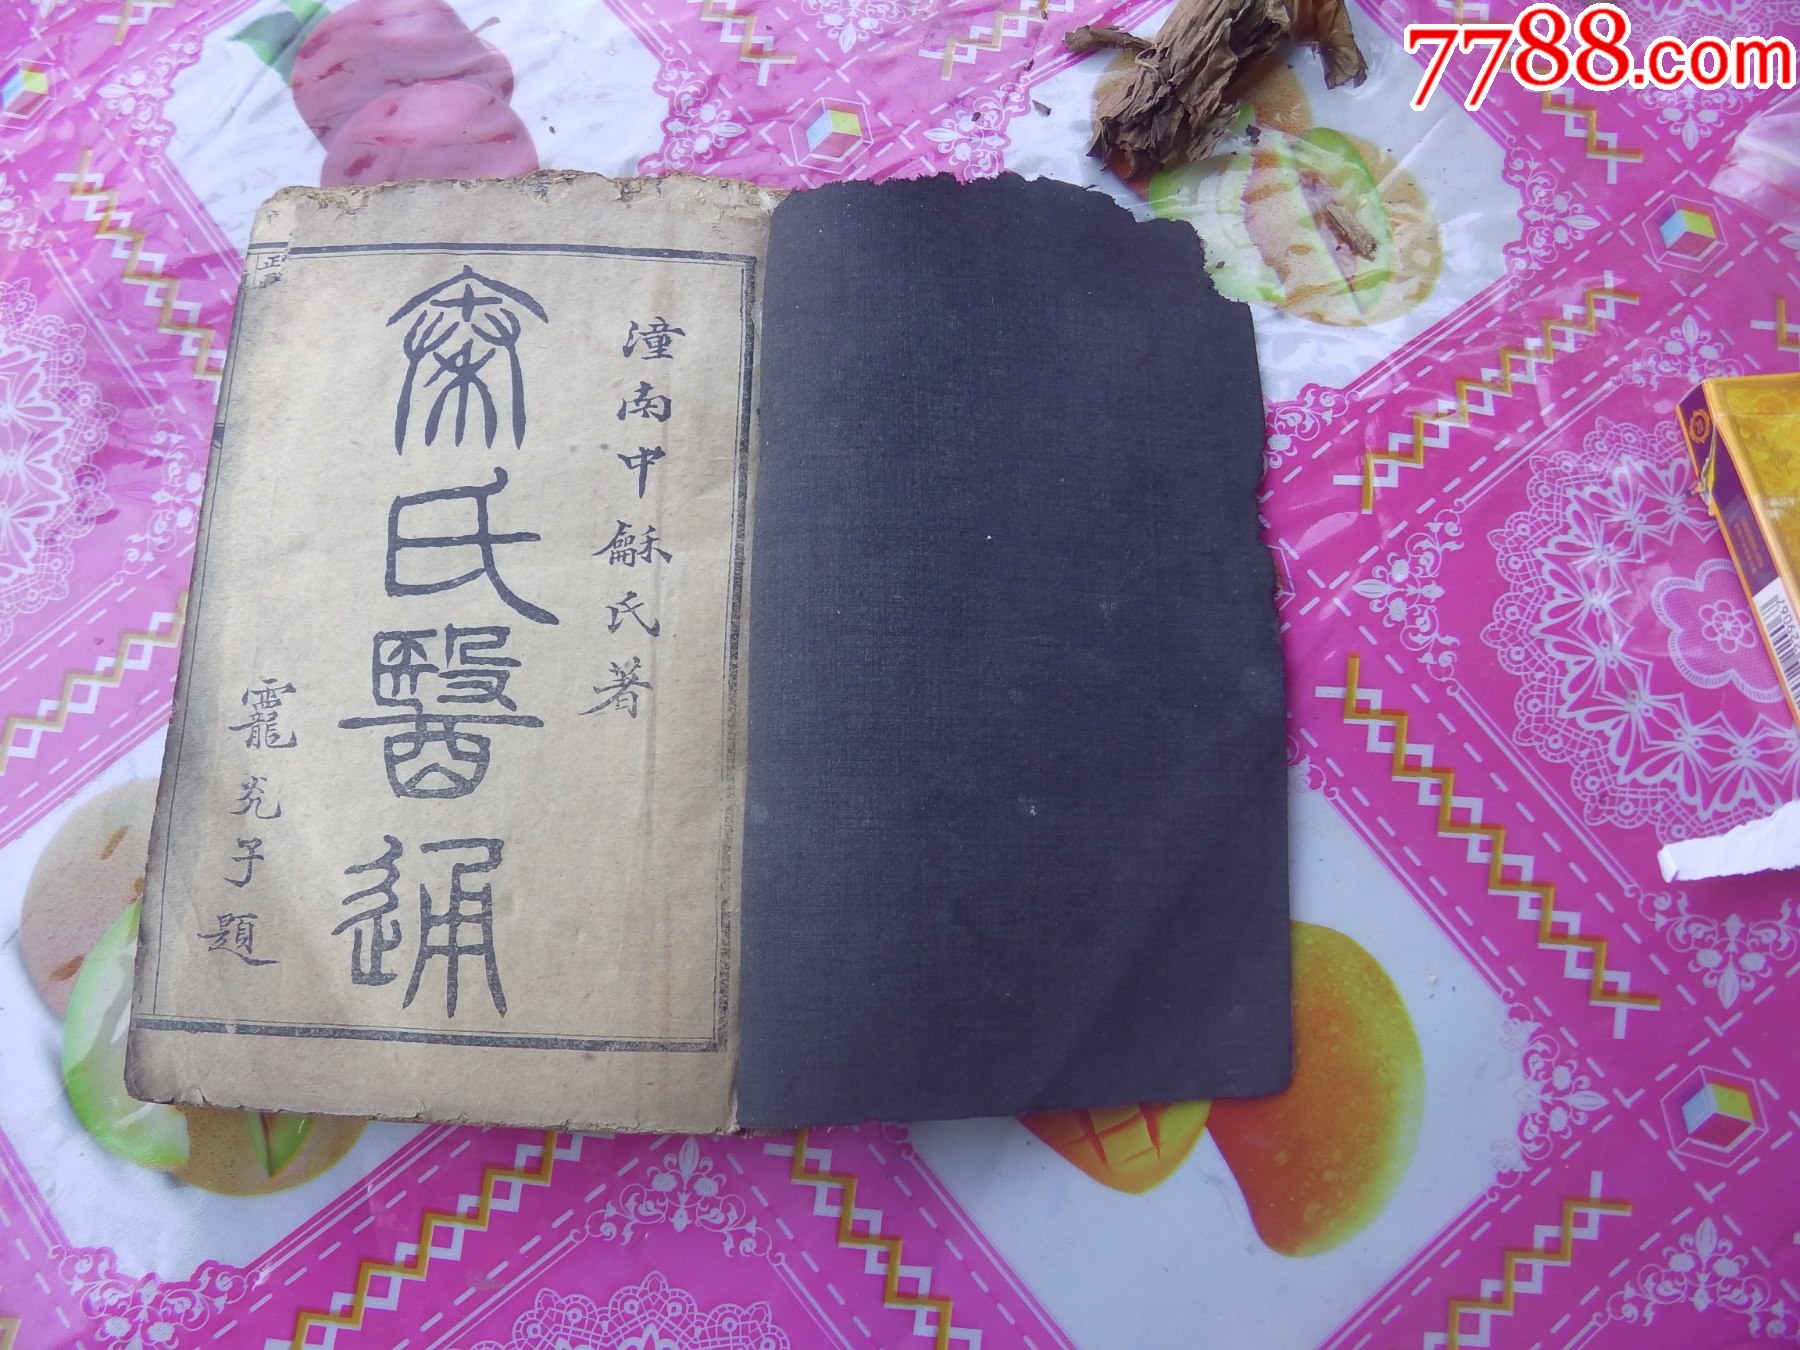 潼南中龢氏著
氏醫通
靇光子題
正
7788.com